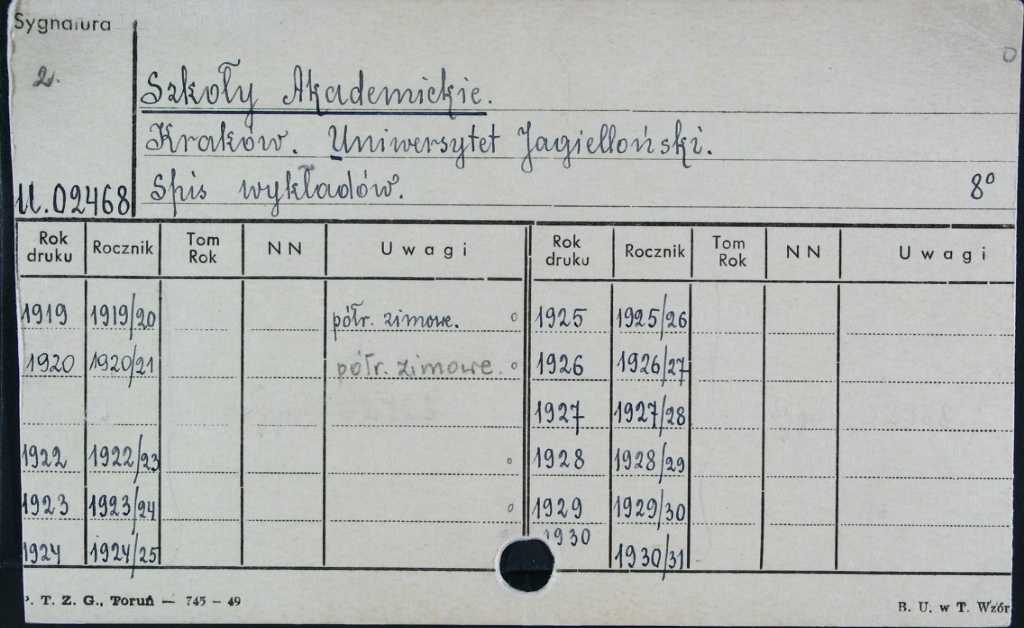 Sygnatura
2.
Szkoły Akademickie.
Kraków. Uniwersytet Jagielloński.
U.02468 Spis wykładów. 8°
Rok druku Rocznik Tom Rok NN Uwagi Rok druku Rocznik Tom Rok NN Uwagi
1919 1919/20 półr. zimowe. 1925 1925/26
1920 1920/21 półr. zimowe. 1926 1926/27
1927 1927/28
1922 1922/23 1928 1928/29
1923 1923/24 1929 1929/30
1924 1924/25 1930 1930/31
P. T. Z. G., Toruń — 745 - 49 B. U. w T. Wzór